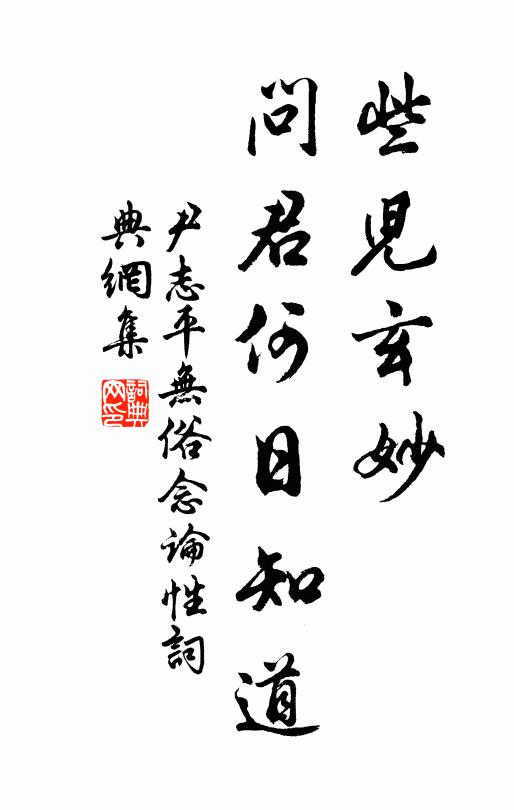 些兒玄妙
問君何日知道
尹志平無俗念論性詞
典網集
詞典網印